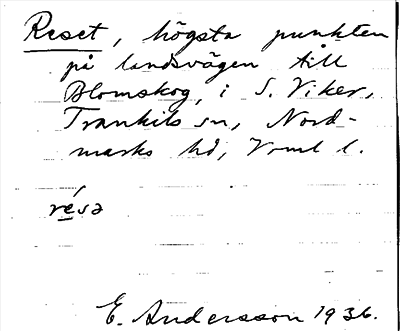 Reset, högsta punkten
på landsvägen till
Blomskog, i S. Viker,
Trankils sn, Nord-
marks hd, Vrml l.
résa
E. Andersson 1936.